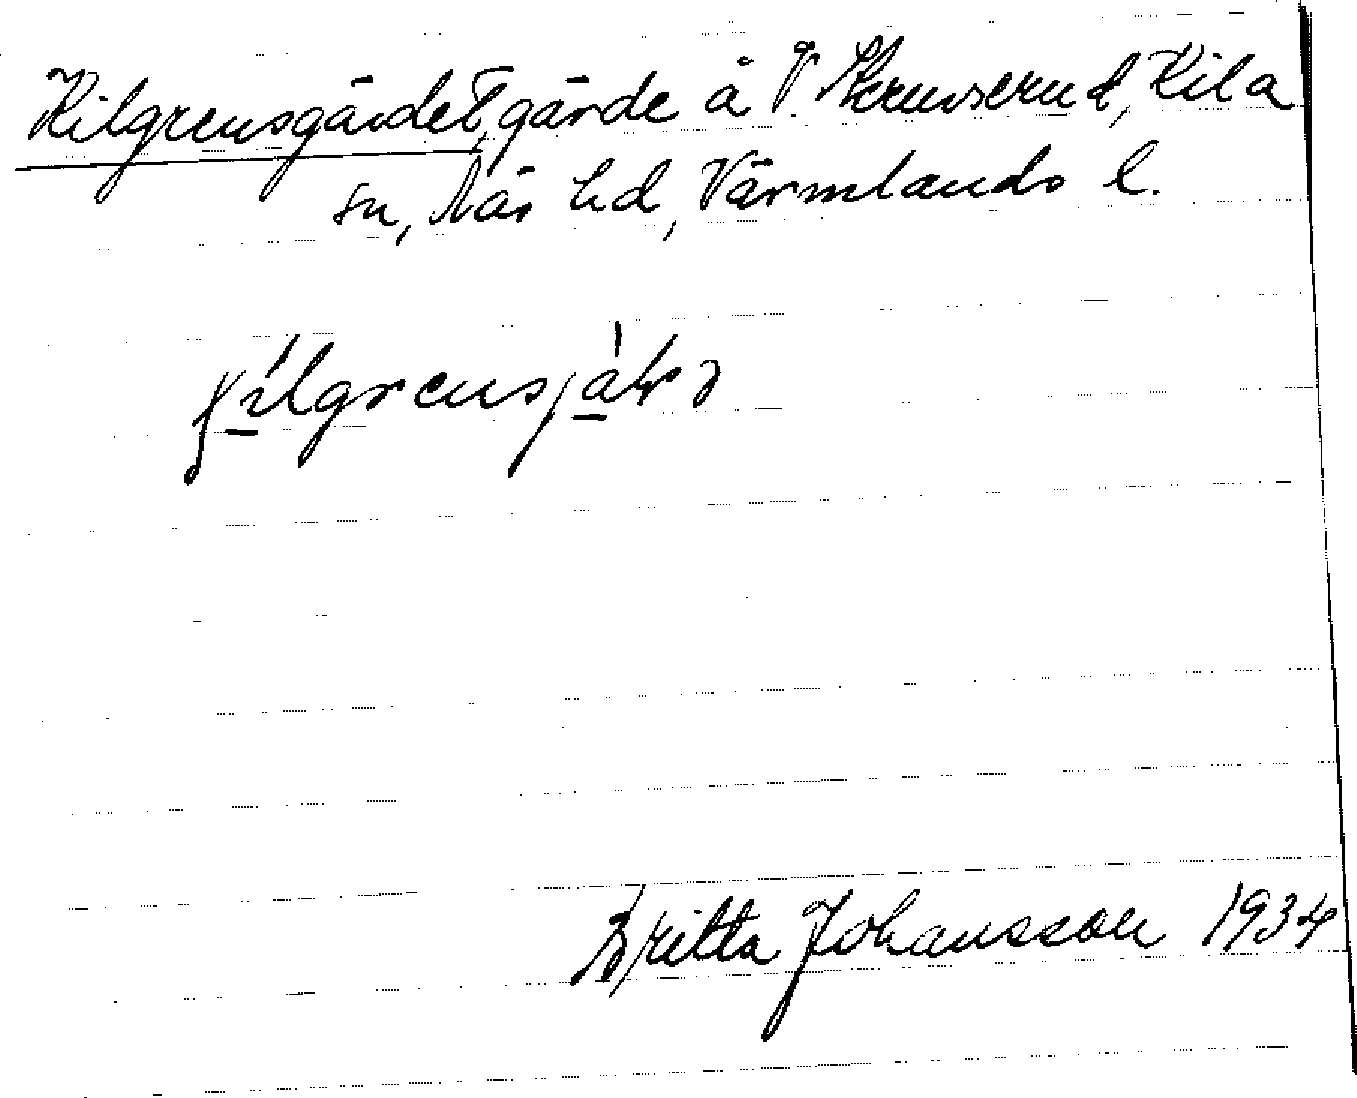 Kilgrensgärdet, gärde å V. Skruvserud, Kila
sn, Näs hd, Värmlands l.
Britta Johansson 1934